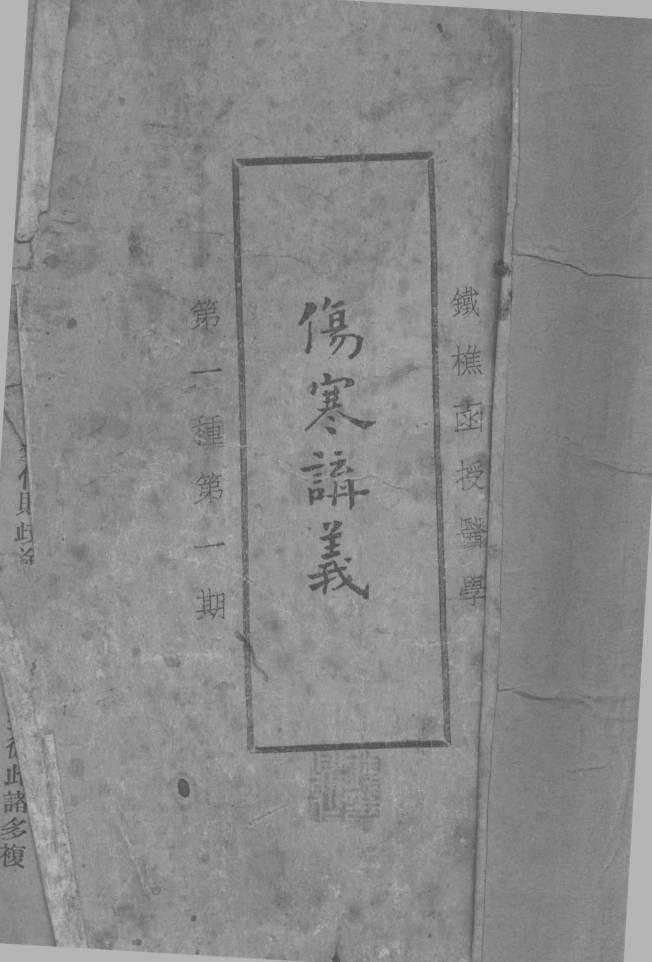 鐵樵函授醫學
傷寒講義
第一種第一期
此諸多複